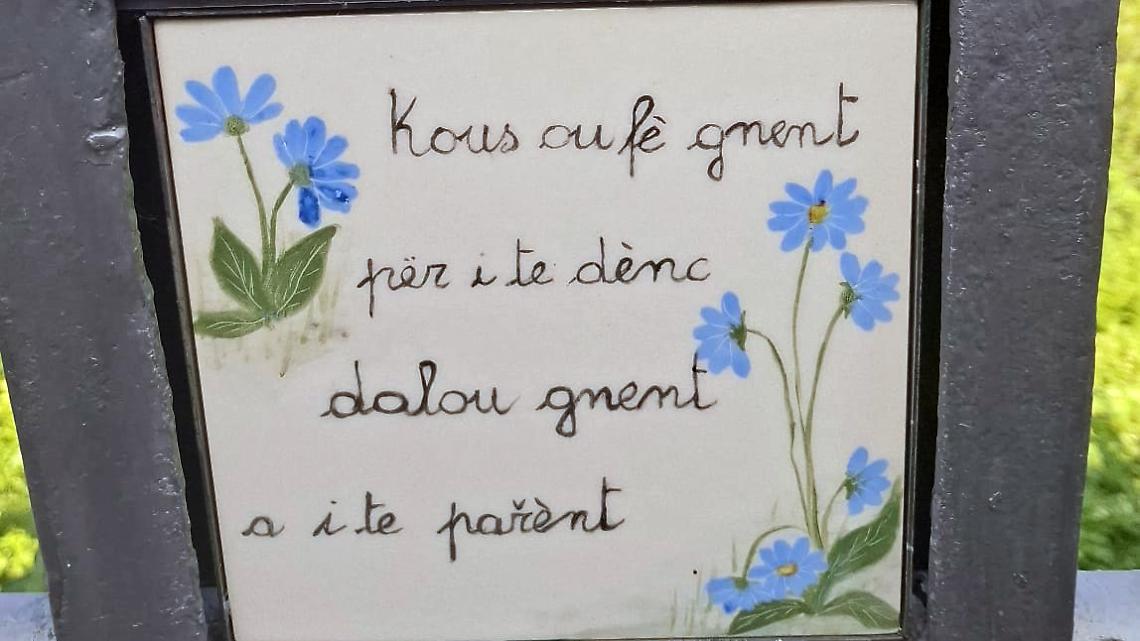 Kous ou fè gnent
për i te dènc
dalou gnent
a i te pařènt